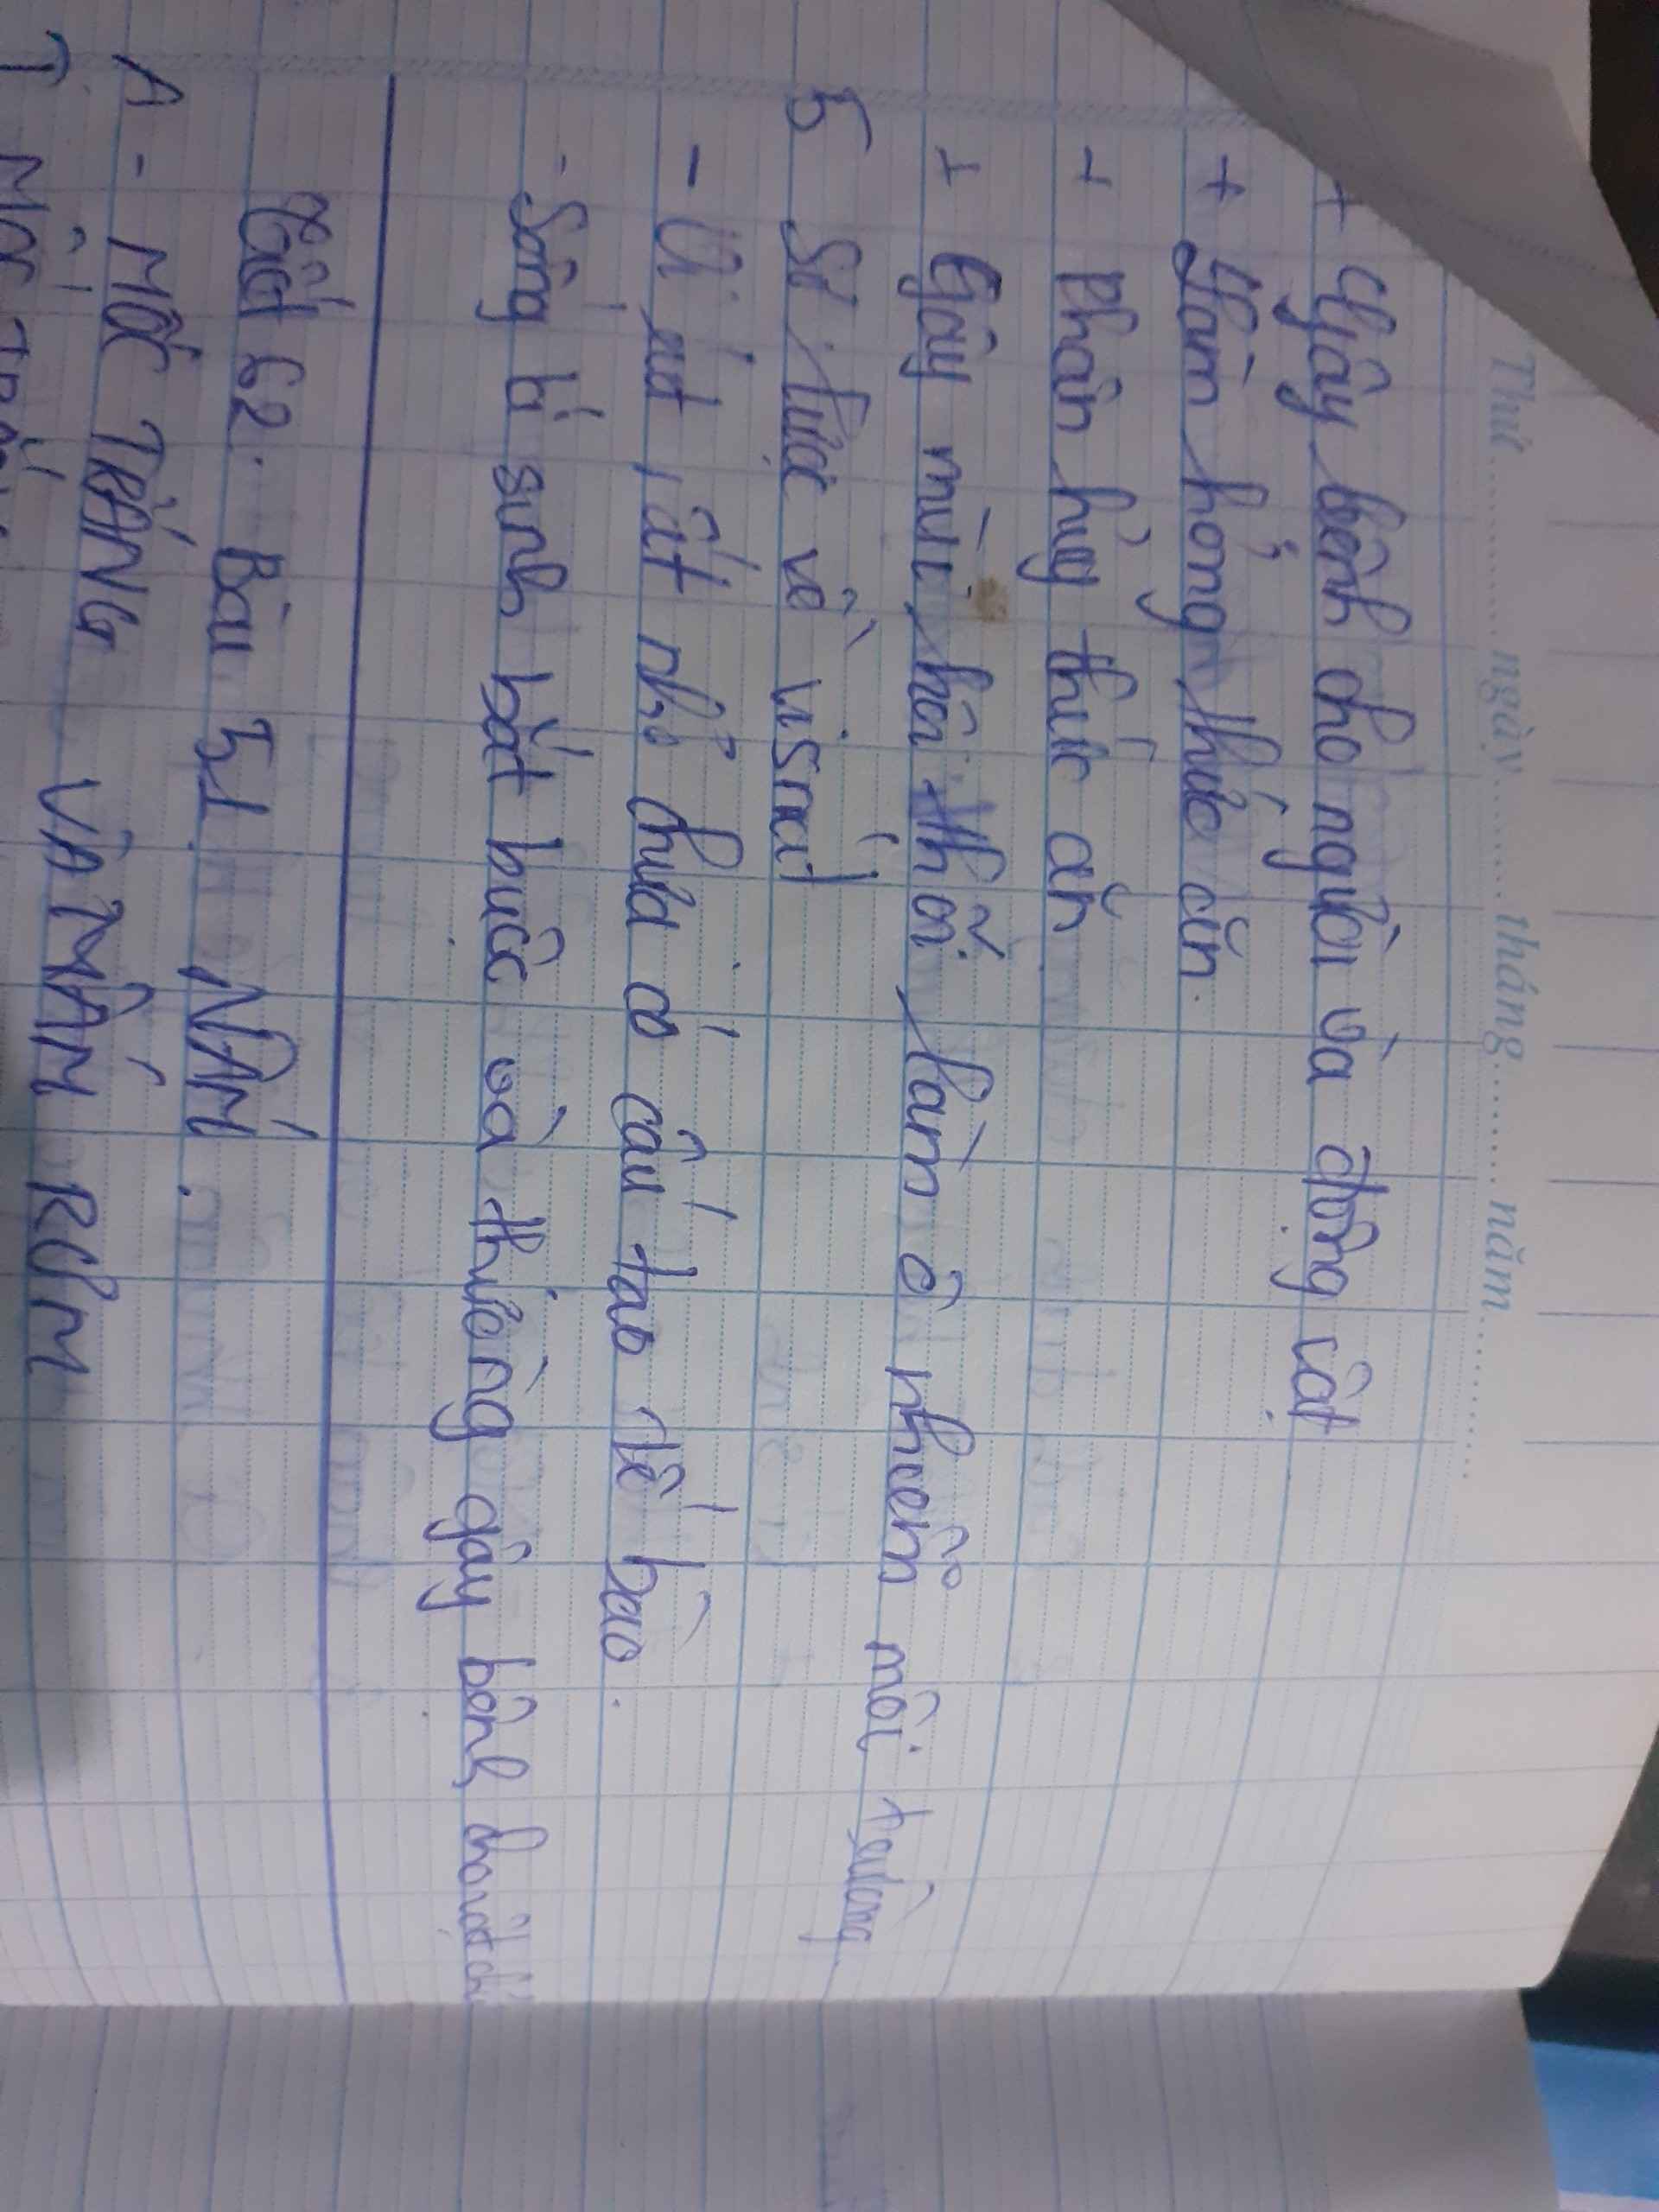 Thứ............ngày............tháng............năm............
+ Gây bệnh cho người và động vật
+ Làm hỏng thức ăn.
+ Phân hủy thức ăn
+ Gây mùi hôi thối, làm ô nhiễm môi trường
5 Sơ lược về virút
- Vi rút rất nhỏ chưa có cấu tạo tế bào.
- Sống kí sinh bắt buộc và thường gây bệnh cho vật chủ
Tiết 62: Bài 51 NẤM.
A - MỐC TRẮNG VÀ NẤM RƠM
I MỐC TRẮNG